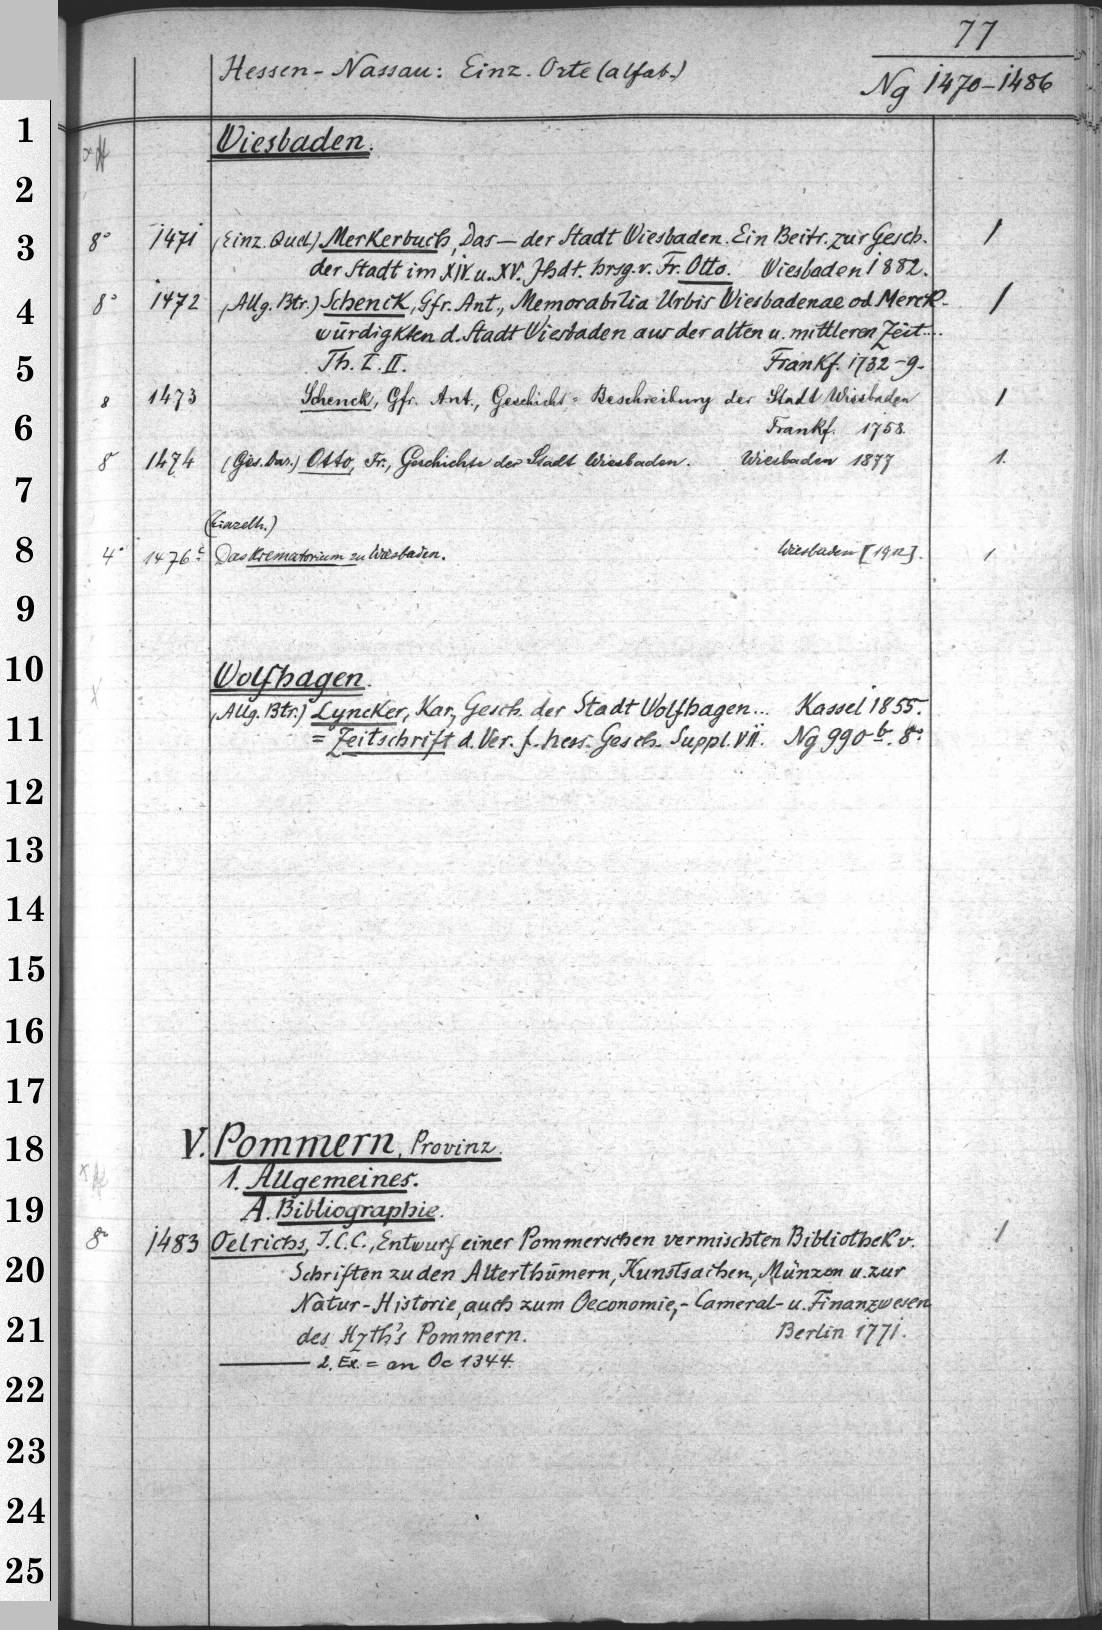 77
Hessen-Nassau: Einz. Orte (alfab.)
Ng 1470-1486
1
Wiesbaden.
2
3 8° 1471 (Einz. Quel.) Merkerbuch, Das — der Stadt Wiesbaden. Ein Beitr. zur Gesch. 1
der Stadt im XIV. u. XV. Jhdt. hrsg. v. Fr. Otto. Wiesbaden 1882.
4 8° 1472 (Allg. Btr.) Schenck, Gfr. Ant., Memorabilia Urbis Wiesbadenae od. Merck- 1
würdigkten d. Stadt Wiesbaden aus der alten u. mittleren Zeit....
5 Th. I. II. Frankf. 1732-9.
8 1473 Schenck, Gfr. Ant., Geschicht = Beschreibung der Stadt Wiesbaden 1
6 Frankf. 1758.
8° 1474 (Ges. Dar.) Otto, Fr., Geschichte der Stadt Wiesbaden. Wiesbaden 1877 1.
7
(Einzelh.)
8 4° 1476c Das Krematorium zu Wiesbaden. Wiesbaden [1912]. 1
9
10 Wolfhagen.
11 (Allg. Btr.) Lyncker, Kar., Gesch. der Stadt Wolfhagen... Kassel 1855.
= Zeitschrift d. Ver. f. hess. Gesch. Suppl. VII. Ng 990 b. 8°
12
13
14
15
16
17
18 V. Pommern, Provinz.
1. Allgemeines.
19 A. Bibliographie.
8° 1483 Oelrichs, J.C.C., Entwurf einer Pommerschen vermischten Bibliothek v. 1
20 Schriften zu den Alterthümern, Kunstsachen, Münzen u. zur
Natur-Historie, auch zum Oeconomie,- Cameral- u. Finanzwesen
21 des Hzth's Pommern. Berlin 1771.
——— 2. Ex. = an Oc 1344.
22
23
24
25